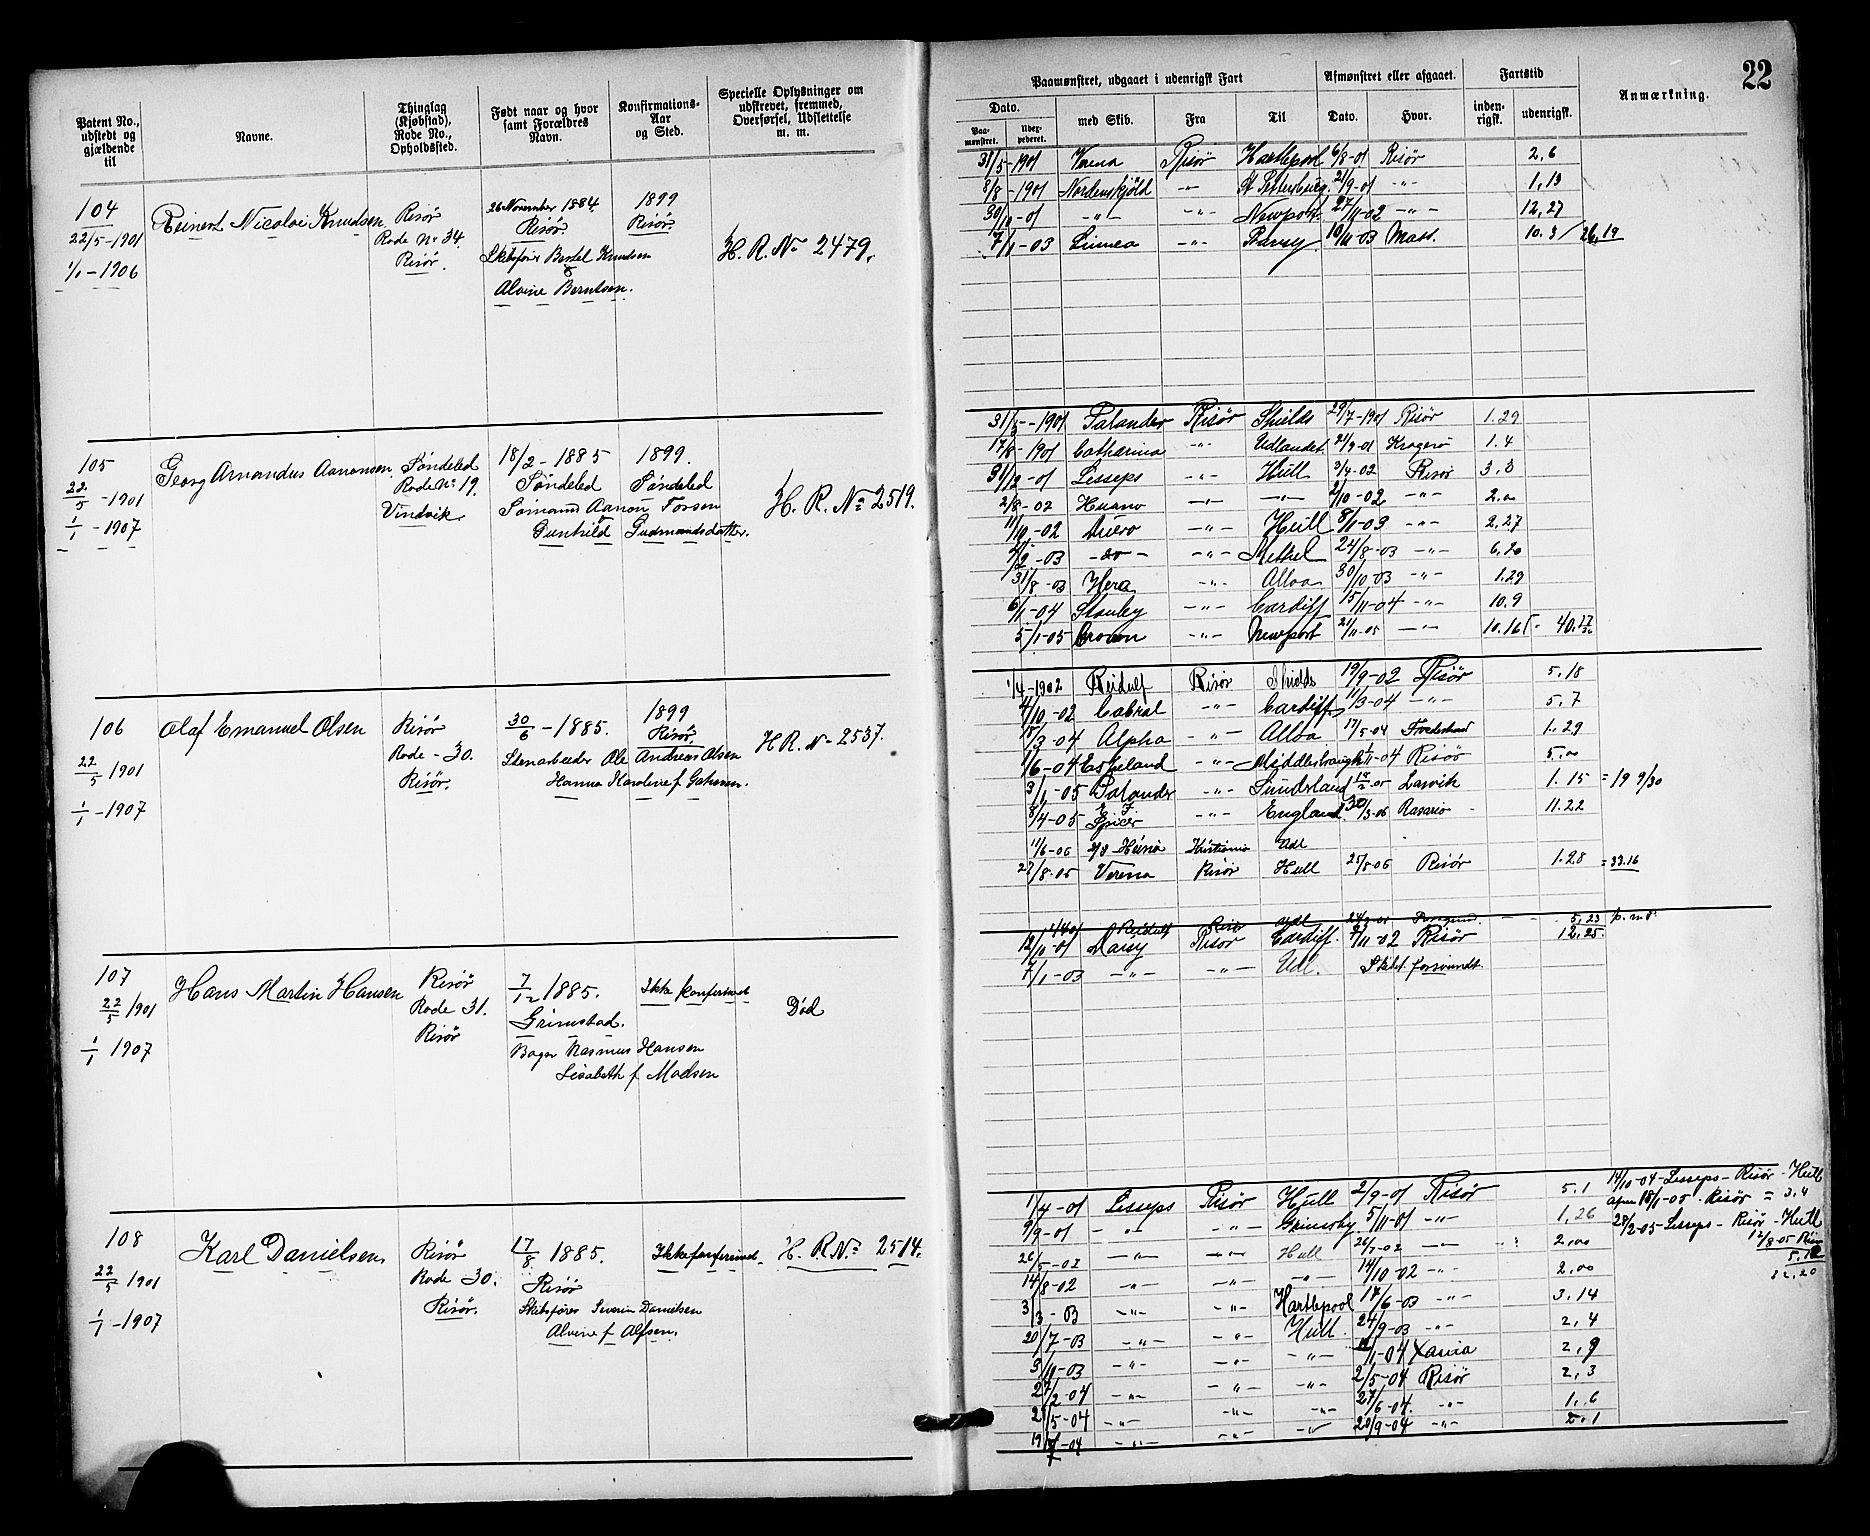 22
Patent No., udstedt og gjældende til
Navne.
Thinglag (Kjøbstad), Rode No., Opholdssted.
Født naar og hvor samt Forældres Navn.
Konfirmations-Aar og Sted.
Specielle Oplysninger om udskrevet, fremmed, Overførsel, Udslettelse m. m.
Paamønstret, udgaaet i udenrigsk Fart
Afmønstret eller afgaaet.
Fartstid
Anmærkning.
Dato.
Paa-mønstret.
med Skib.
Fra
Til
Dato.
Hvor.
inden-rigsk.
udenrigsk.
104
22/5-1901
1/1-1906
Reinert Nicolai Knudsen
Risør
Rode No 34.
Risør.
26 November 1884.
Risør
Skibsfører Bertel Knudsen
Alvine Berntsen.
1899
Risør.
H. R. No 2479.
31/5-1901 Verna Risør Hartlepool 6/8-01 Risør 2,6
8/8-1901 Nordenskjöld -"- St Petersburg 21/9-01 -"- 1,13
-"- -"- Newport 27/11-02 -"- 12,27
7/1-03 Linnea -"- 10/11-03 Mass. 10.3/26,19
105
22/5-1901
1/1-1907
Georg Arnandus Aanonsen
Søndeled
Rode No 19.
Vindvik
18/2-1885
Søndeled
Aanon Torsen
Gunhild Gudmundsdatter.
1899.
Søndeled
H. R. No 2519.
31/5-1901 Palander Risør Shields 29/7-1901 Risør 1.29
17/8-1901 Catharina -"- Udlandet 21/9-01 Kragerø 1.4
31/12-01 Lesseps -"- Hull 3/4-02 Risør 3.3
2/8-02 Huano -"- -"- 2/10-02 -"- 2.00
11/10-02 -"- Hull 8/1-03 -"- 2.27
-03 -do- -"- Methel 24/8-03 -"- 6.20
31/8-03 Hera -"- Alloa 30/10-03 -"- 1.29
6/1-04 Stanley -"- Cardiff 15/11-04 -"- 10.9
5/1-05 Crown -"- Newport 21/11-05 -"- 10.16 40.17/30
106
22/5 1901
1/1-1907
Olaf Emanuel Olsen
Risør
Rode - 30.
Risør.
30/6-1885.
Stenarbeider Ole Andreas Olsen
Hanna Karoline f.
1899
Risør.
H R. No 2537.
1/4-1902 Reidulf Risør Shields 19/9-02 Risør 5.18
4/10-02 Cabral -"- Cardiff 11/3-04 -"- 5.7
15/3-04 Alpha -"- Alloa 17/5-04 Frederikstad 1.29
1/6-04 Eskeland -"- Middlesbrough 1/11-04 Risør 5.00
3/1-05 Palander -"- Sunderland Larvik 1.15 = 19 9/30
8/4-05 Spicer -"- England 30/3-06 Rosario 11.22
11/6-06 Kristiania Udl
27/8-06 Verena Risør Hull Risør 1.28 = 33.16
107
22/5 1901
1/1 1907
Hans Martin Hansen
Risør
Rode 31.
Risør
7/12 1885.
Grimstad.
Bager Rasmus Hansen
Lisabeth f Madsen
Ikke konfirmeret
Død
Reidulf Risør Udl 5,23
12/11-01 Daisy Risør Cardiff. 7/11-02 Risør 12,25.
7/1-03 -"- -"- Udl. Skibet forsvundt.
108
22/5 1901
1/1-1907
Karl Danielsen
Risør
Rode 30.
Risør.
17/8 1885.
Risør
Skibsfører Severin Danielsen
Alvine f Alfsen.
Ikke konfirmeret
H. R. No 2514.
1/4-01 Lesseps Risør Hull 2/9-01 Risør 5.1
9/9-01 -"- -"- Grimsby 5/11-01 -"- 1,26
26/5-02 -"- -"- Hull 26/7-02 -"- 2,00
14/8-02 -"- -"- -"- 14/10-02 -"- 2,00
3/3-03 -"- -"- Hartlepool 17/6-03 -"- 3,14
20/7-03 -"- -"- Hull. 24/9-03 -"- 2,4
3/11-03 -"- -"- -"- 1-04 Xania 2,9
27/2-04 -"- -"- -"- 2/5-04 Risør 2,3
21/5-04 -"- -"- -"- 27/6-04. -"- 1.6
19/7-04 -"- -"- -"- 20/9-04 -"- 2.1
14/10-04 Lesseps - Risør - Hull
afm 18/1-05. Risør = 3,4
28/2-05 Lesseps - Risør - Hull
12/8-05 Risør
5,12